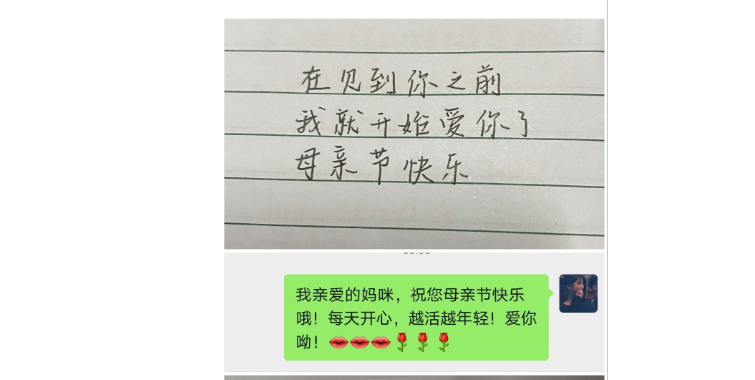 在见到你之前
我就开始爱你了
母亲节快乐
我亲爱的妈咪，祝您母亲节快乐
哦！每天开心，越活越年轻！爱你
呦！💋💋💋🌹🌹🌹